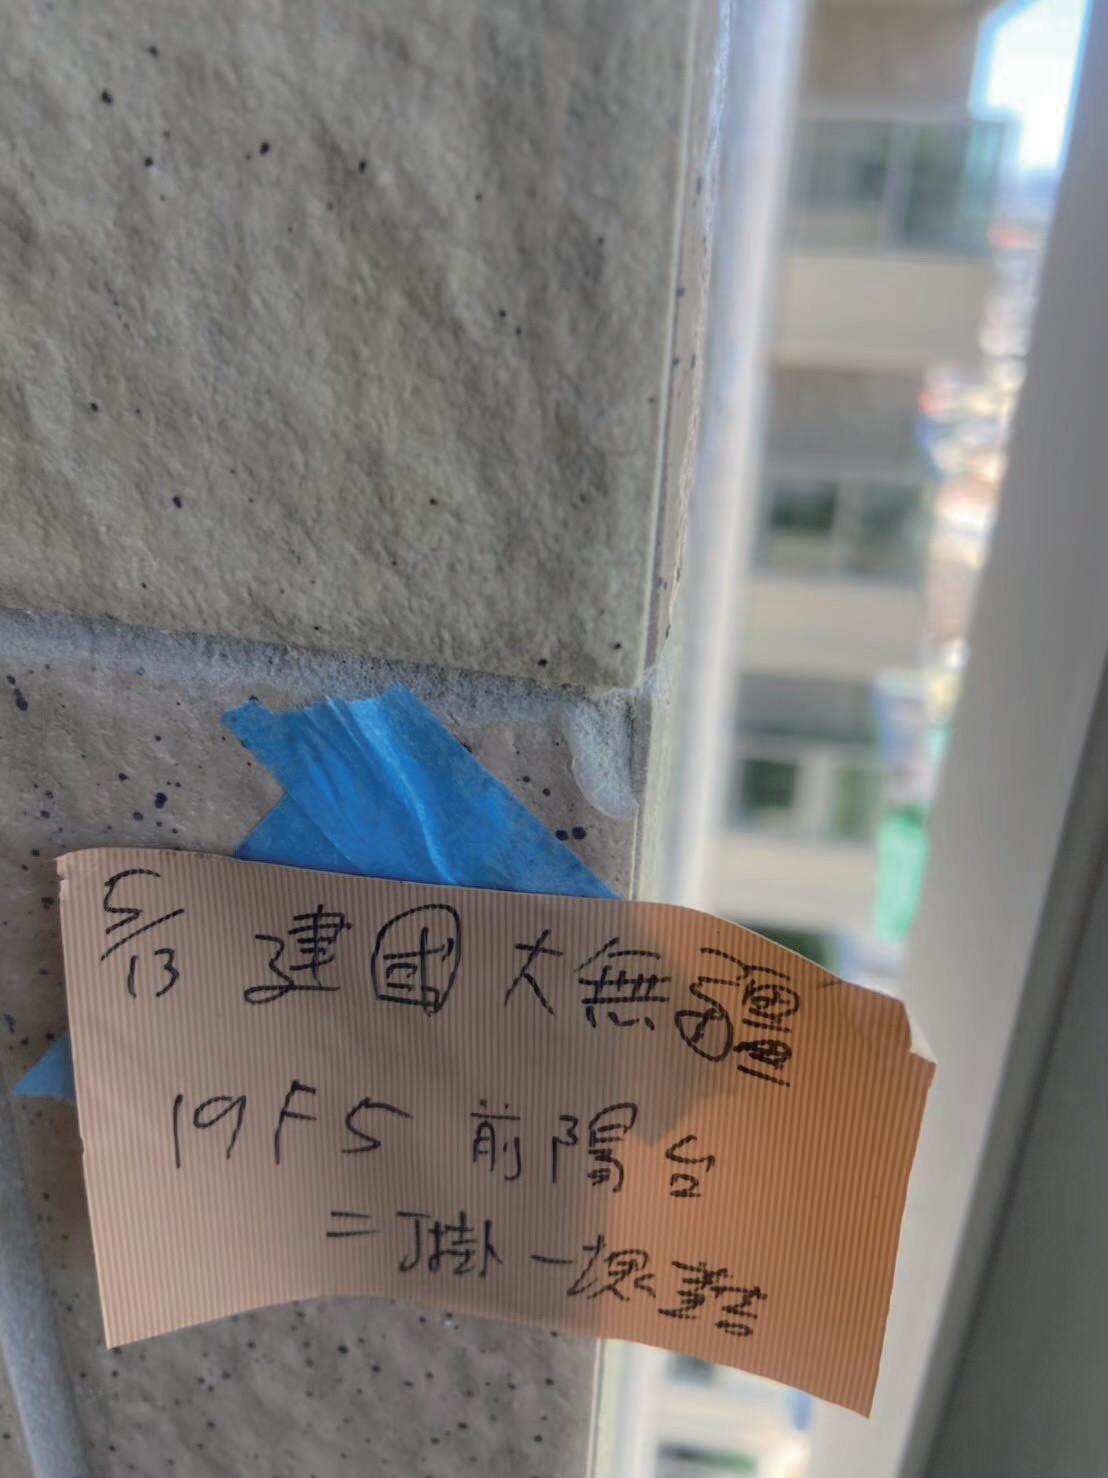 5/13 建國大無疆
19F5 前陽台
二丁掛一塊